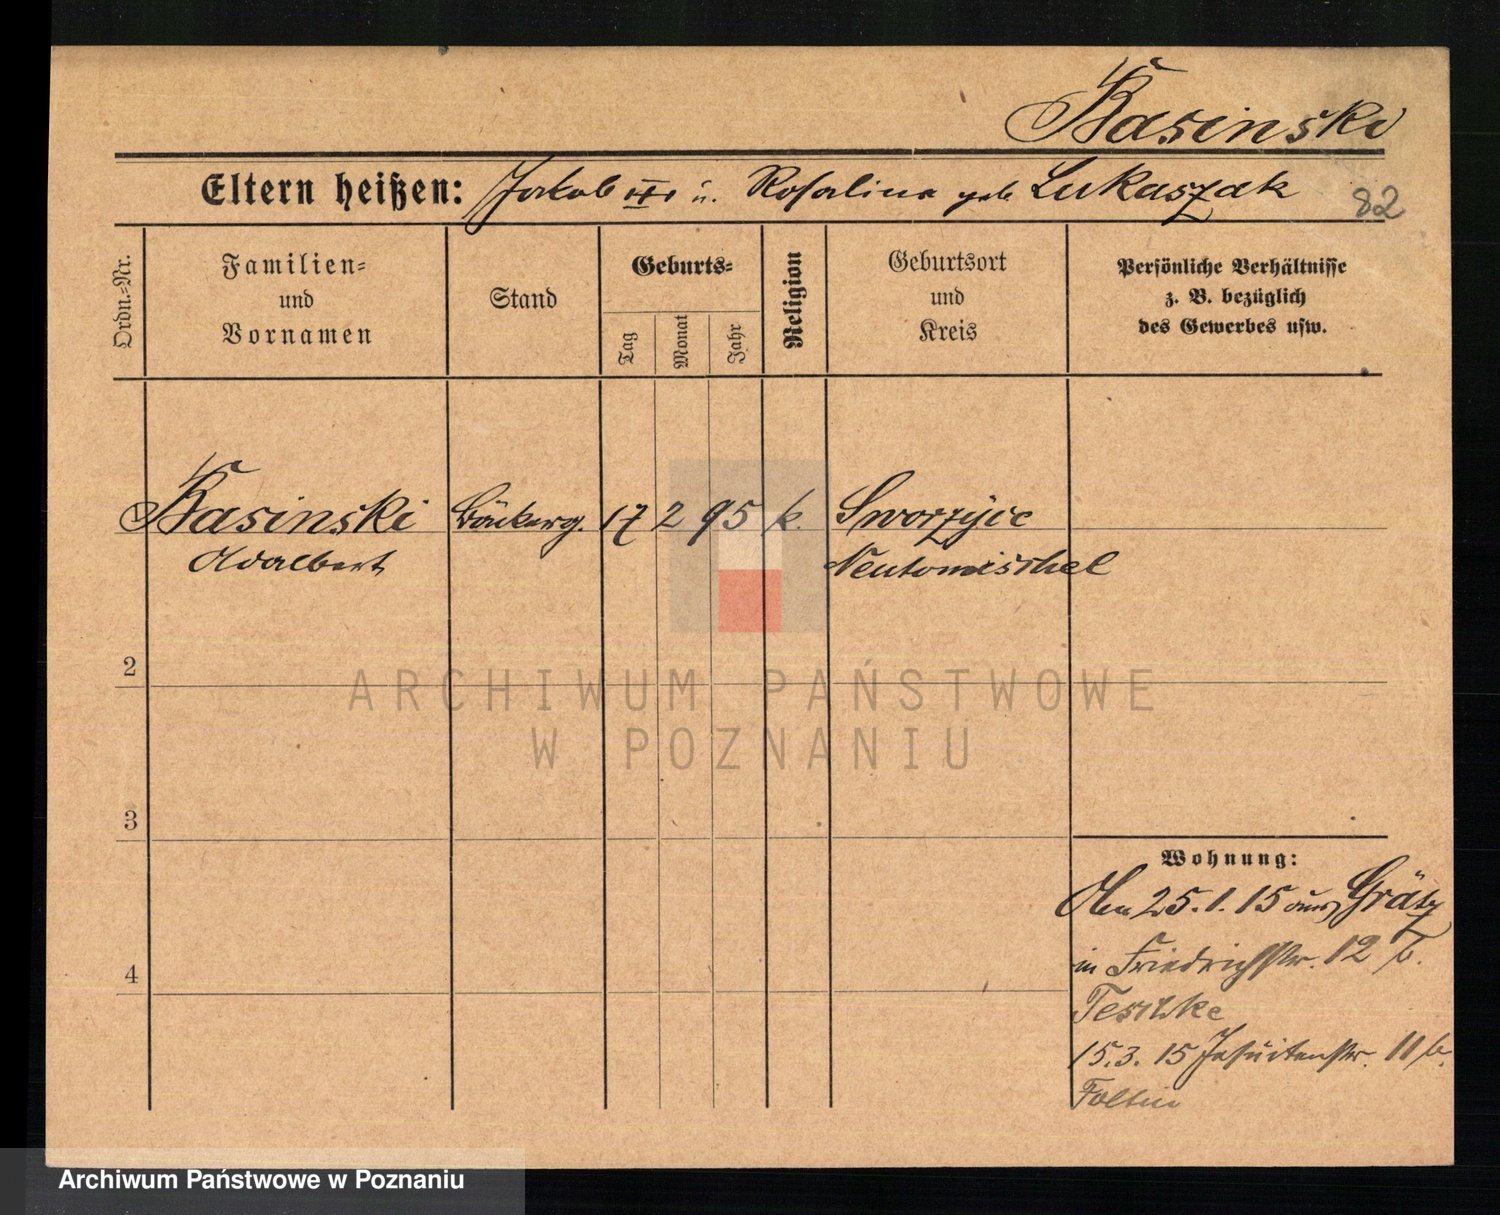 Kasinski
Eltern heißen: Jakob u. Rosalina geb Lukaszak
82
Ordn.=Nr.
Familien=
und
Vornamen
Stand
Geburts=
Tag
Monat
Jahr
Religion
Geburtsort
und
Kreis
Persönliche Verhältnisse
z. B. bezüglich
des Gewerbes usw.
Kasinski Bäckerg. 17 2 95 k. Sworzyce
Adalbert Neutomischel
2
ARCHIWUM PAŃSTWOWE
W POZNANIU
3
Wohnung:
25.1.15 aus Grätz
in Friedrichstr. 12 b.
Teschke
15.3.15 Jesuitenstr. 11 b.
4
Archiwum Państwowe w Poznaniu